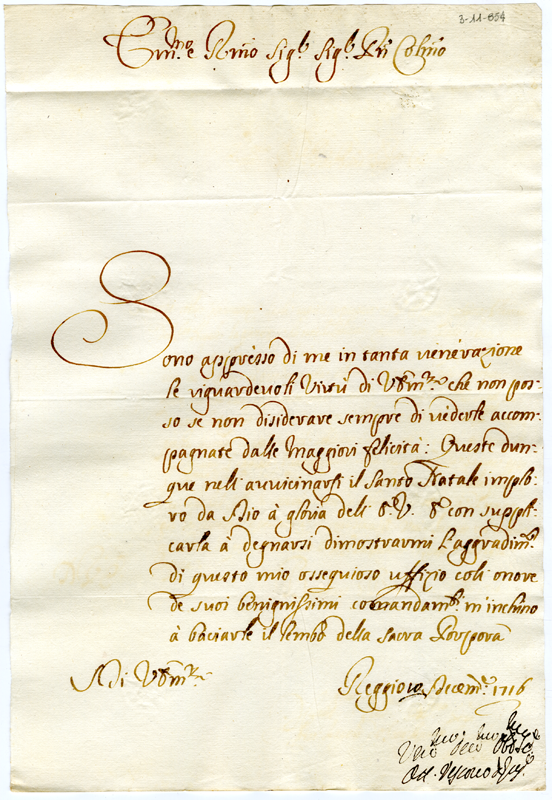 3-11-554
Em.mo e Rmo Sig.r Sig.r Prn Colmo
Sono appresso di me in tanta venerazione
le riguardevoli Virtù di V. Em.za che non pos-
so se non disiderare sempre di vederle accom-
pagnate dalle maggiori felicità: Queste dun-
que nell'avvicinarsi il Santo Natale implo-
ro da Dio à gloria dell' E. V. E con suppli-
carla à degnarsi dimostrarmi l'aggradim.to
di questo mio ossequioso uffizio coll' onore
de suoi benignissimi comandam.ti m'inchino
à baciarle il lembo della Sacra Porpora
Di V. Em.za
Reggio Dicem.e 1716